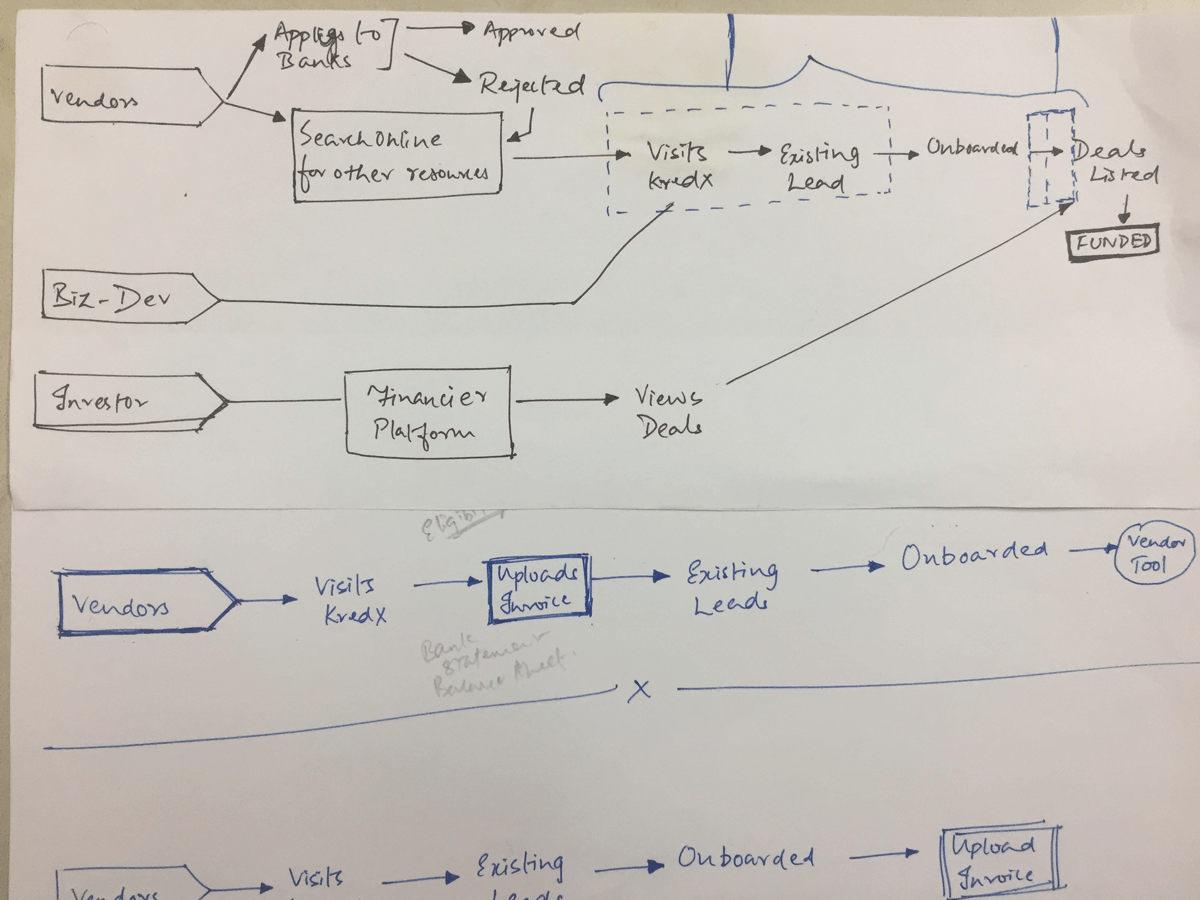 Vendors
Applies to
Banks
Approved
Rejected
Search Online
for other resources
Visits
KredX
Existing
Lead
Onboarded
Deals
Listed
FUNDED
Biz-Dev
Investor
Financier
Platform
Views
Deals
Vendors
Visits
KredX
Uploads
Invoice
Existing
Leads
Onboarded
Vendor
Tool
Bank
Statement
Balance Sheet.
X
Vendors
Visits
Existing
Leads
Onboarded
Upload
Invoice